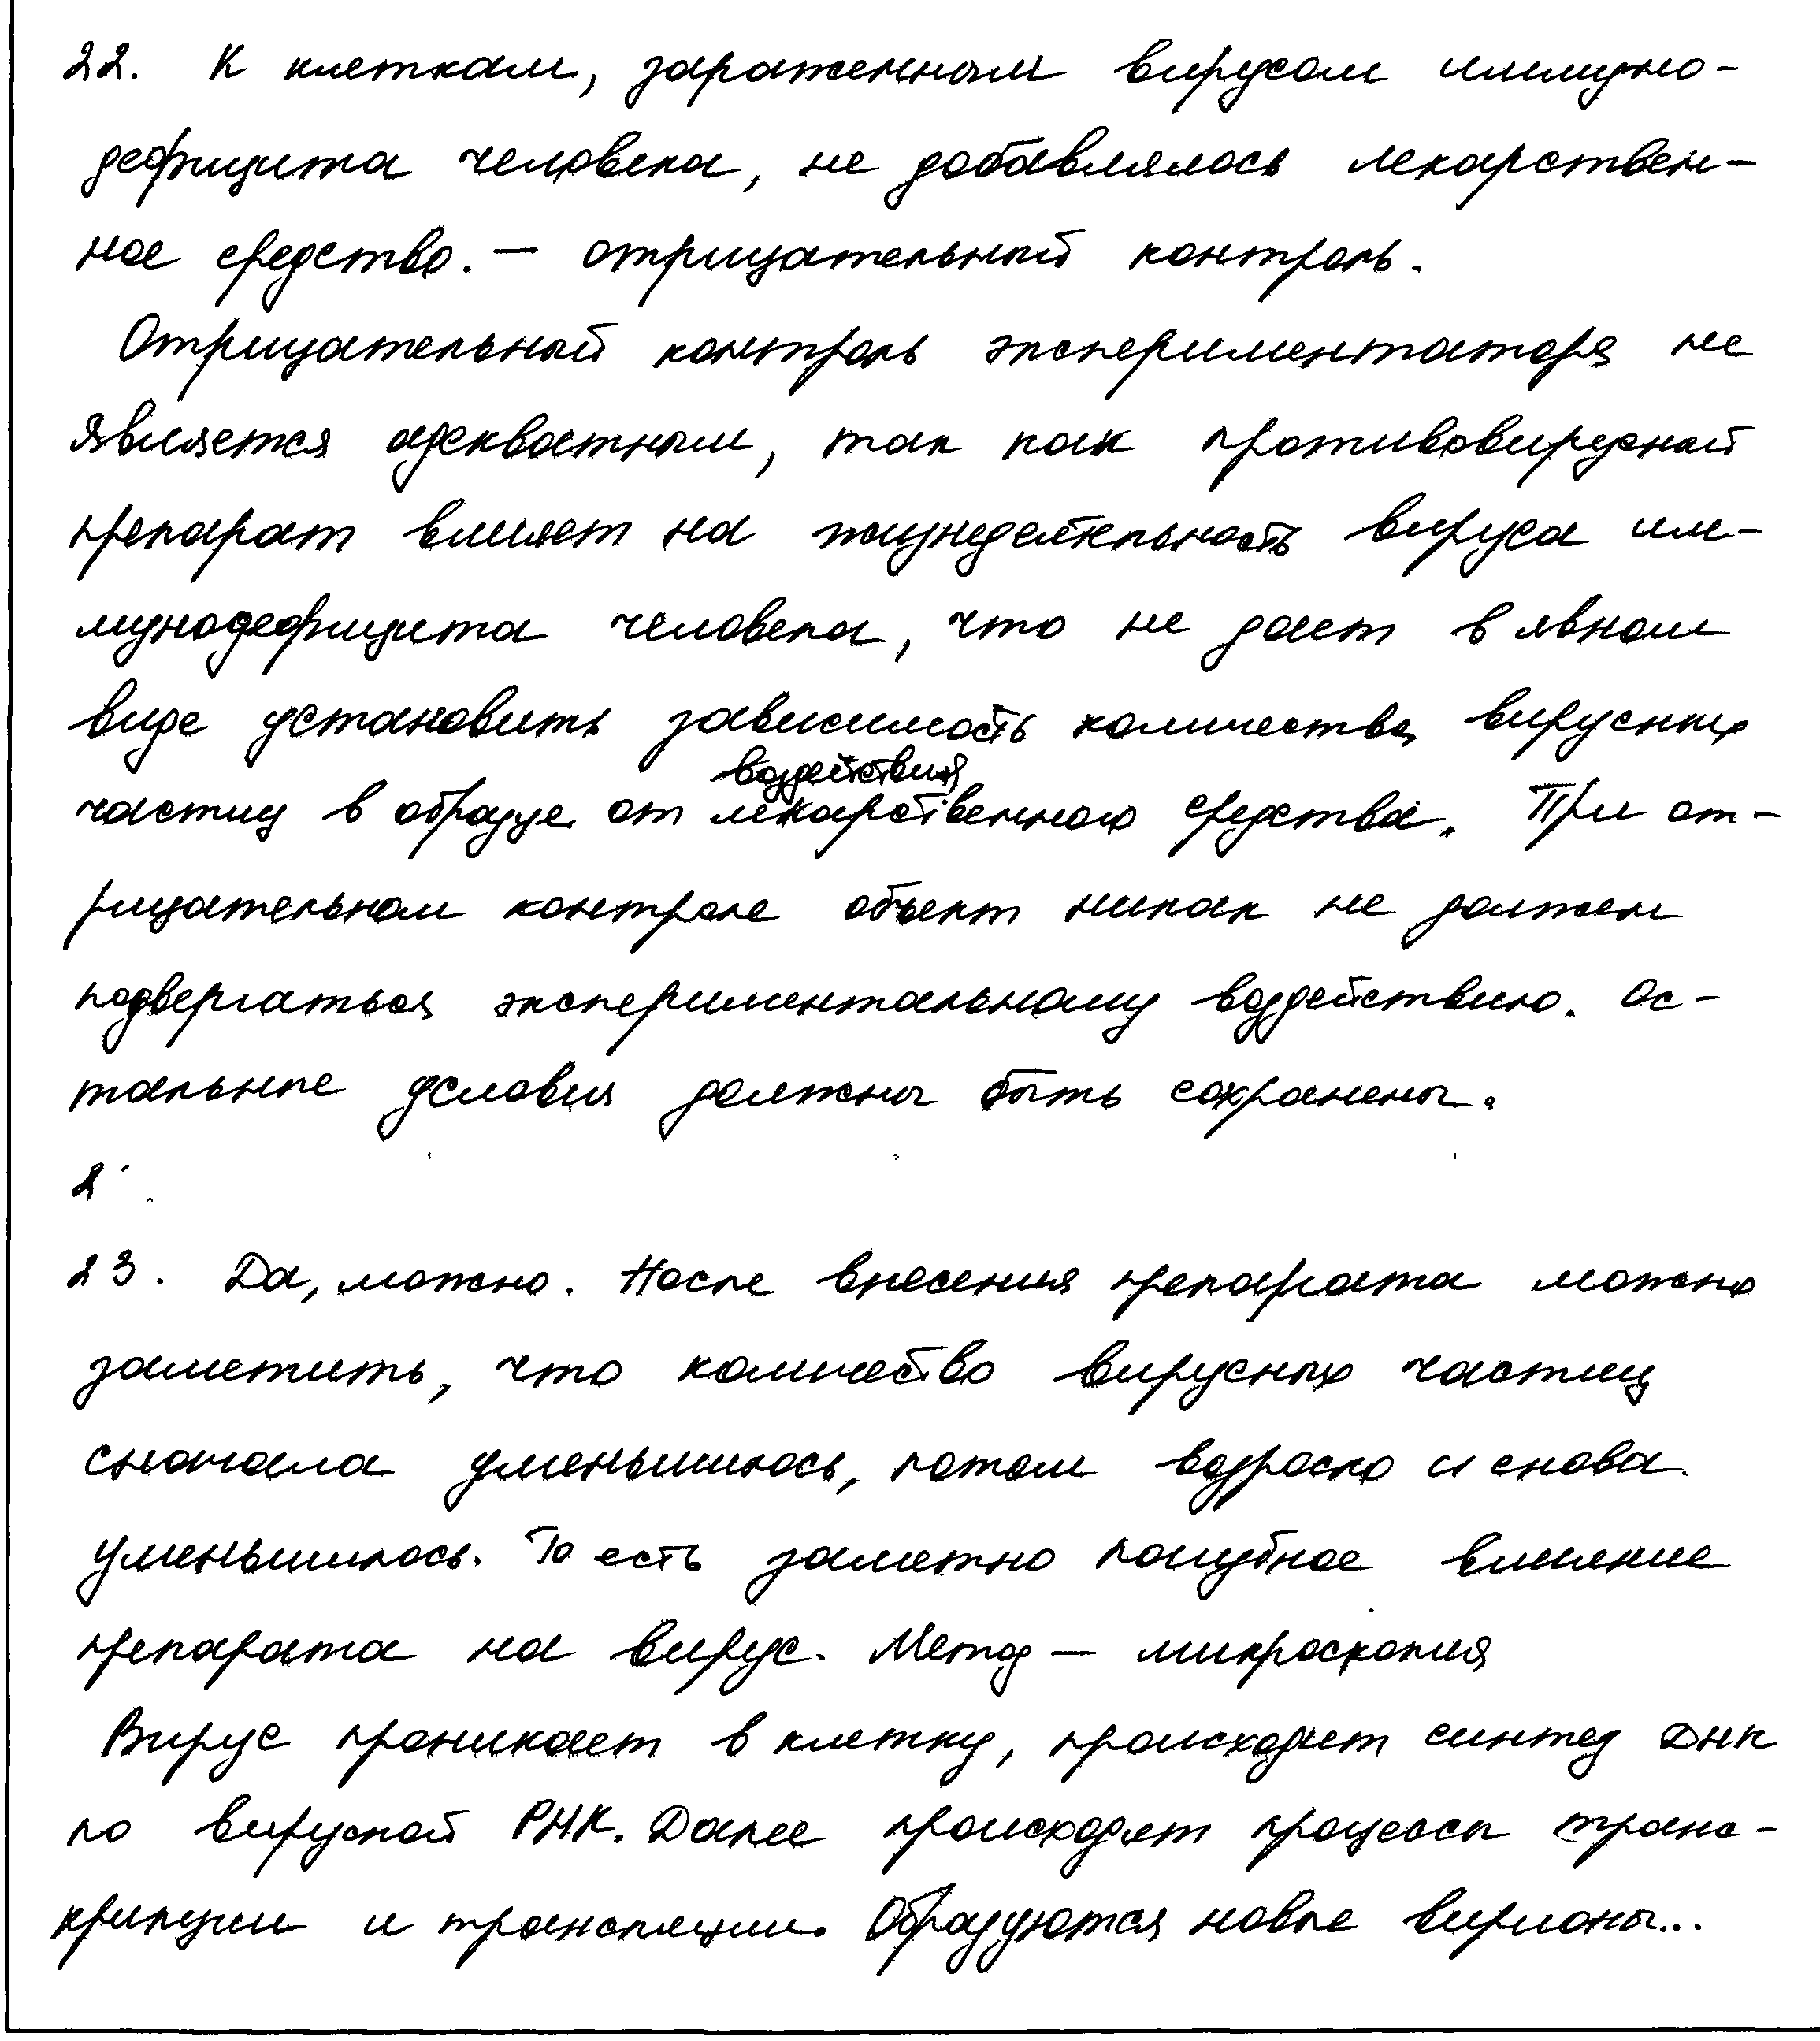 22. К клеткам, зараженным вирусом иммуно-
дефицита человека, не добавлялось лекарствен-
ное средство. — отрицательный контроль.
Отрицательный контроль экспериментатора не
является адекватным, так как противовирусный
препарат влияет на жизнедеятельность вируса им-
мунодефицита человека, что не дает в явном
виде установить зависимость количества вирусных
воздействия
частиц в образце от лекарственного средства. При от-
рицательном контроле объект никак не должен
подвергаться экспериментальному воздействию. Ос-
тальные условия должны быть сохранены.
2
23. Да, можно. После внесения препарата можно
заметить, что количество вирусных частиц
сначала уменьшилось, потом возросло и снова
уменьшилось. То есть заметно пагубное влияние
препарата на вирус. Метод — микроскопия
Вирус проникает в клетку, происходит синтез ДНК
по вирусной РНК. Далее происходят процессы транс-
крипции и трансляции. Образуются новые вирионы...